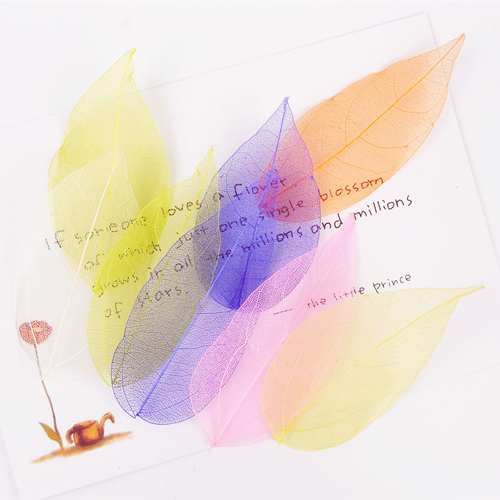 If someone loves a flower
of which just one single blossom
grows in all the millions and millions
of stars.
...... the little prince